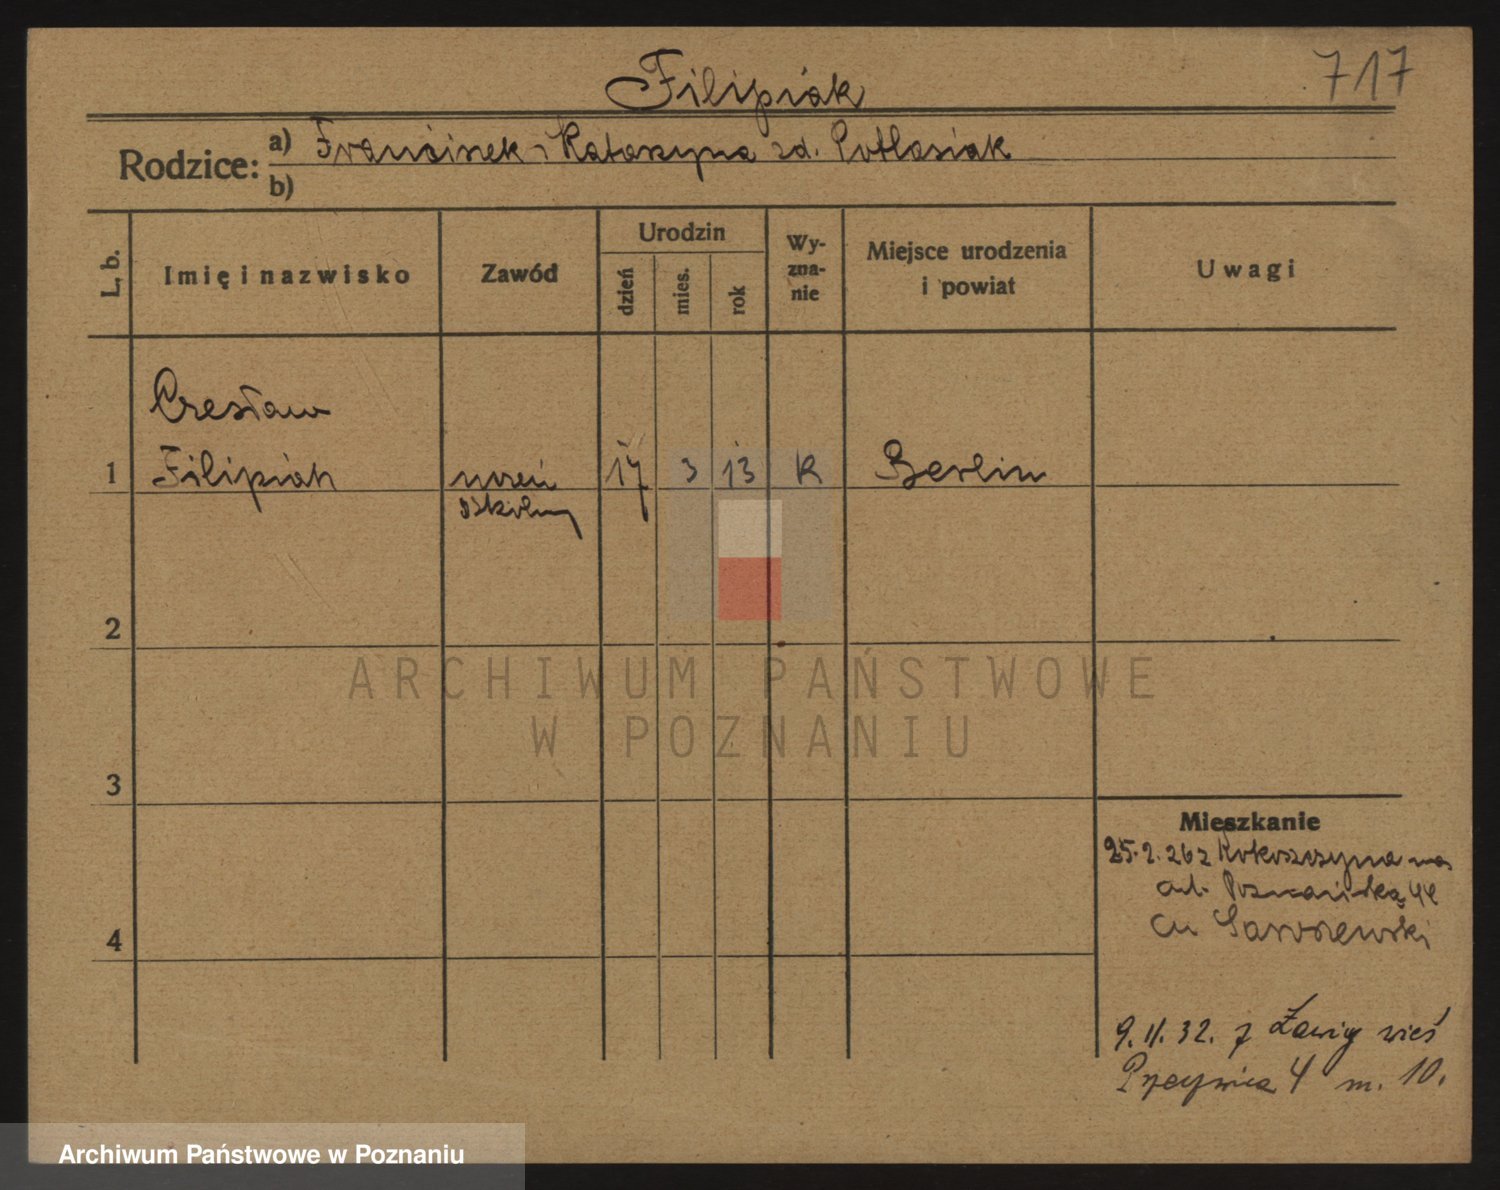 Filipiak
717
Rodzice: a) Franciszek i Katarzyna zd. Potlasiak
b)
L. b.
Imię i nazwisko
Zawód
Urodzin
dzień
mies.
rok
Wy-
zna-
nie
Miejsce urodzenia
i powiat
Uwagi
Czesław
1 Filipiak uczeń 17 3 13 K Berlin
szkolny
2
ARCHIWUM PAŃSTWOWE
W POZNANIU
3
Mieszkanie
25.2.26 z
ul. Poznańska 44
4
9.11.32. z wieś
4 m. 10.
Archiwum Państwowe w Poznaniu